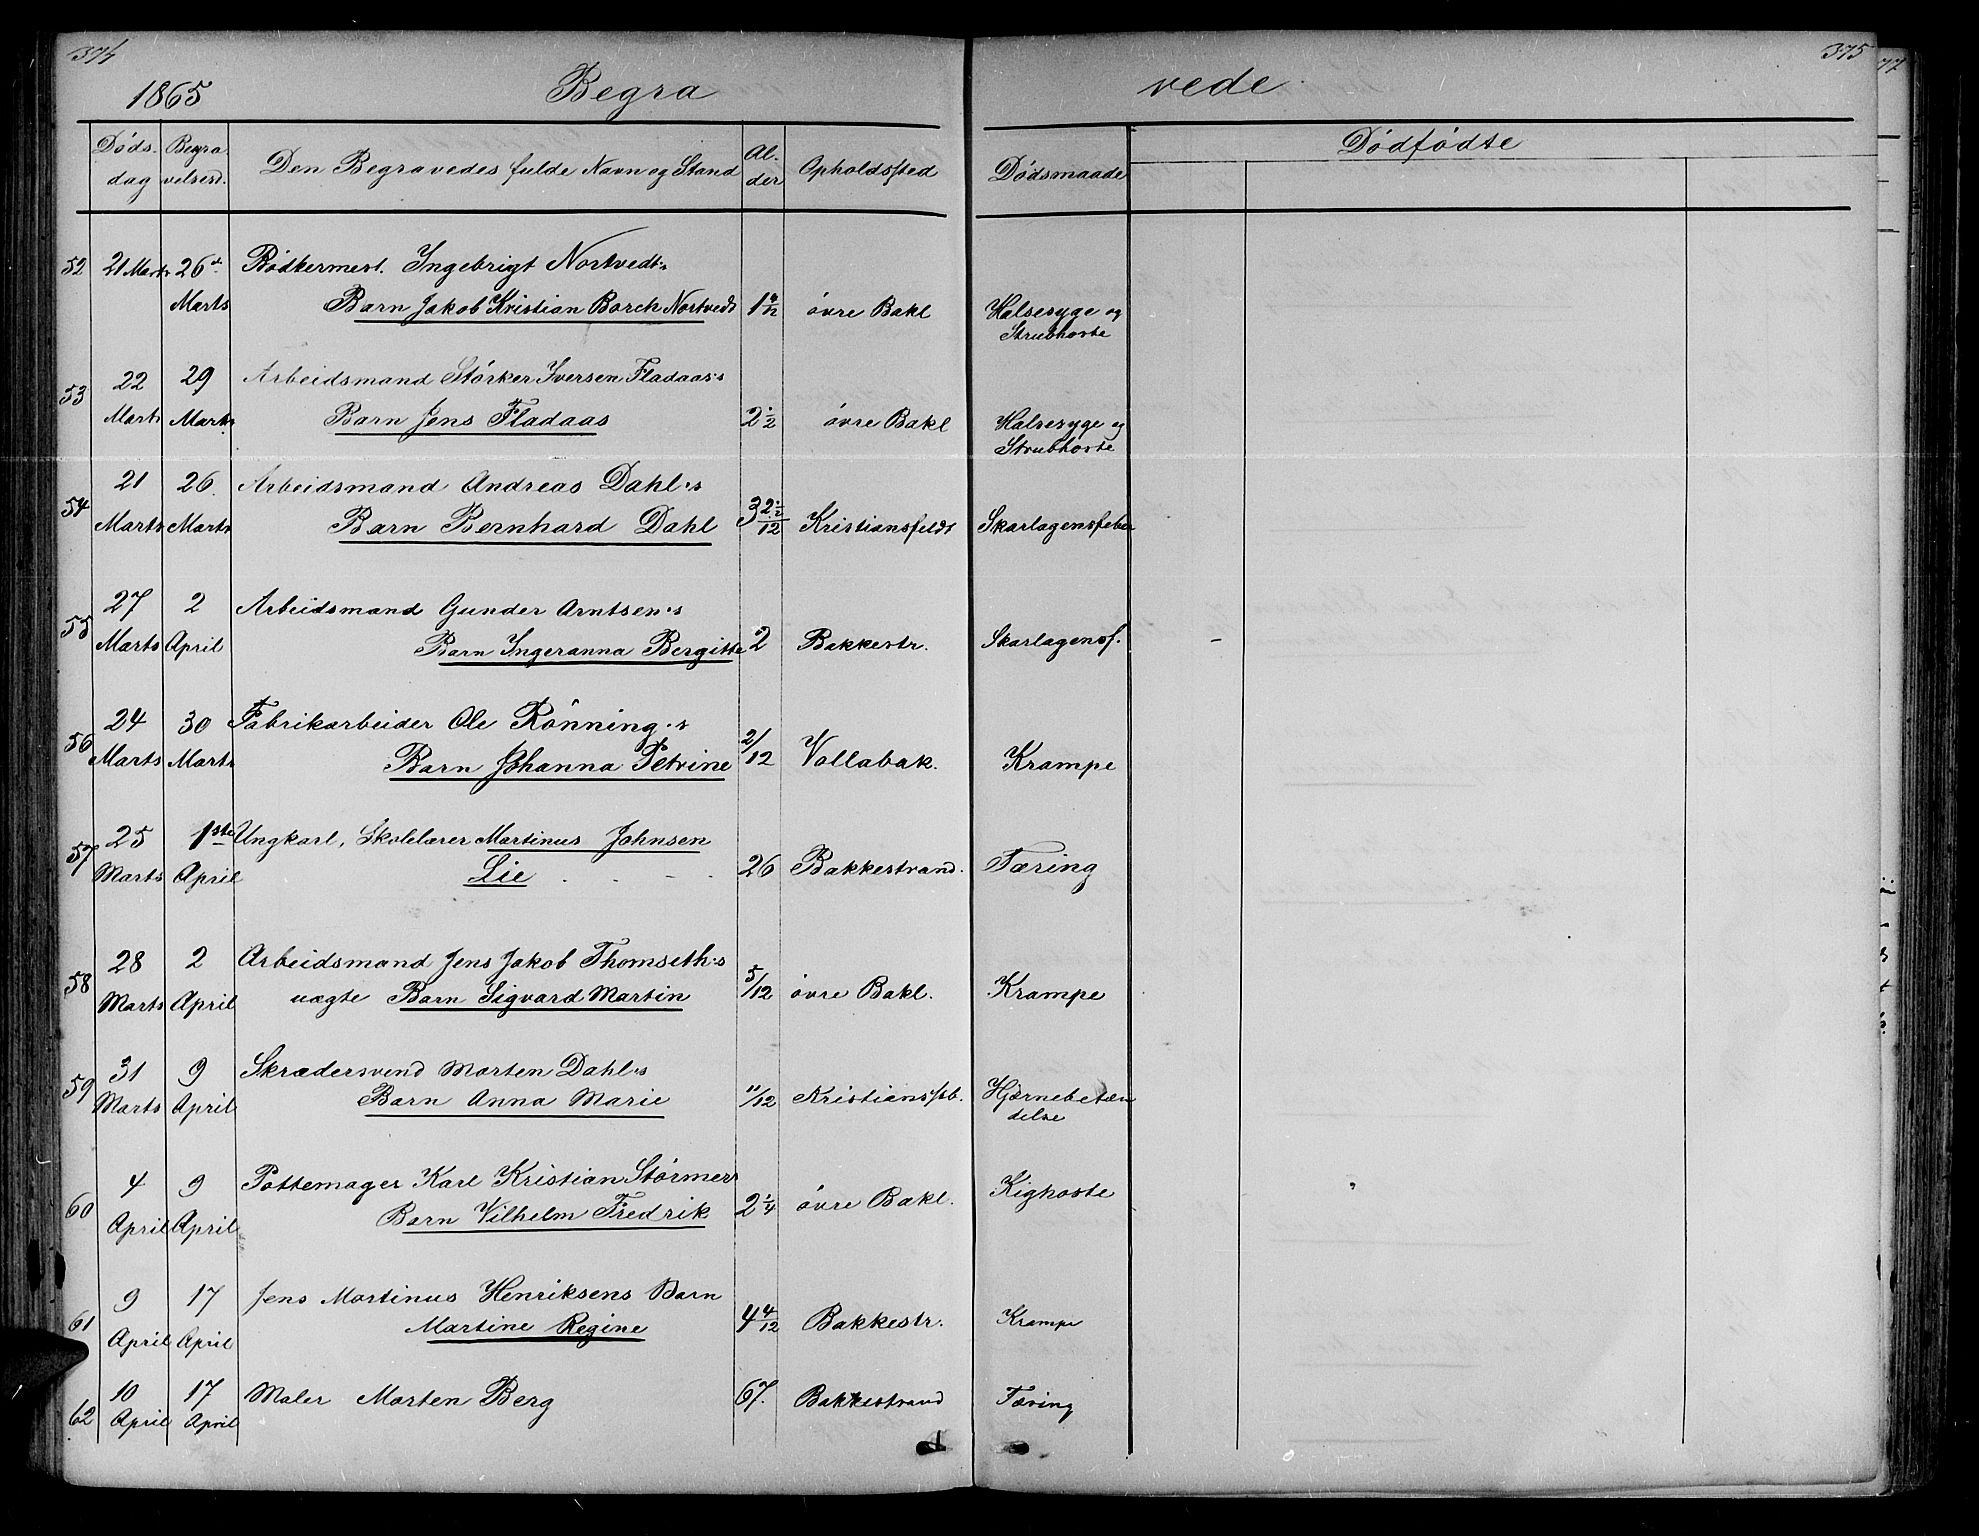 374
375
77
1865
Begra
vede
Døds-
dag
Begra
velsesd.
Den Begravedes fulde Navn og Stand
Al-
der
Opholdssted
Dødsmaade
Dødfødte
52 21 Marts 26de Bødkermest. Ingebrigt Nortvedt's
Marts Barn Jakob Kristian Borch Nortvedt 1 4/12 övre Bakl Halsesyge og
Strubhoste
53 22 29 Arbeidsmand Störker Iversen Fladaas's
Marts Marts Barn Jens Fladaas 2 1/2 övre Bakl Halsesyge og
Strubhoste
54 21 26. Arbeidsmand Andreas Dahl's
Marts Marts Barn Bernhard Dahl 3 2 1/2/12 Kristiansfeldt Skarlagensfeber
55 27 2 Arbeidsmand Gunder Arntsen's
Marts April Barn Ingeranna Bergitte 2 Bakkestr. Skarlagensf.
56 24 30 Fabrikarbeider Ole Rönning's
Marts Marts Barn Johanna Petrine 2/12 Vollabak. Krampe
57 25 1ste Ungkarl, Skolelærer Martinus Johnsen
Marts April Lie 26 Bakkestrand. Tæring
58 28 2 Arbeidsmand Jens Jakob Thomseth's
Marts April uægte Barn Sigvard Martin 5/12 övre Bakl. Krampe
59 31 9 Skrædersvend Morten Dahl's
Marts April Barn Anna Marie 11/12 Kristiansfb. Hjernebetæn
delse
60 4 9 Pottemager Karl Kristian Störmers
April April Barn Vilhelm Fredrik 2 1/4 övre Bakl. Kighoste
61 9 17 Jens Martinus Henriksens Barn
April April Martine Regine 4 4/12 Bakkestr. Krampe
62 10 17 Maler Morten Berg 67. Bakkestrand Tæring
April April